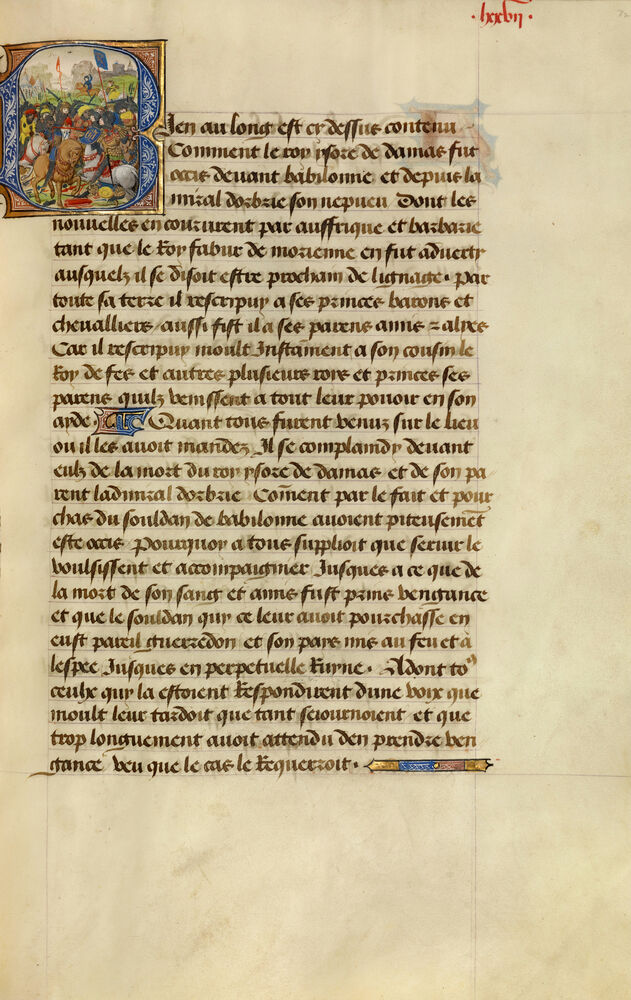 .lxxvii.
Bien au long est cy dessus contenu
Comment le roy ysore de damas fut
occis deuant babilonne et depuis la
miral dorbrie son nepueu Dont les
nouuelles en coururent par auffrique et barbarie
tant que le Roy fabur de morienne en fut aduerty
ausquelz il se disoit estre prochain de lignage. Par
toute sa terre il rescripuy a ses princes barons et
cheualliers aussi fist il a ses parens amis z aliyes
Car il rescripuy moult Instament a son cousin le
Roy de fes et autres plusieurs roys et princes ses
parens quilz venissent a tout leur pouoir en son
ayde. Quant tous furent venuz sur le lieu
ou il les auoit mandez Il se complaindy deuant
eulz de la mort du roy ysore de damas et de son pa
rent ladmiral dorbrie Coment par le fait et pour
chas du souldan de babilonne auoient piteusemēt
este occis Pourquoy a tous supplioit que seruir le
voulsissent et accompaignier Jusques a ce que de
la mort de son sang et amis fust prins vengance
et que le souldan quy ce leur auoit pourchasse en
eust pareil guerredon et son pays mis au feu et a
lespee Jusques en perpetuelle Ruyne. Adont to9
ceulx quy la estoient Respondirent dune voix que
moult leur tardoit que tant seiournoient et que
trop longuement auoit attendu den prendre ven
gance veu que le cas le Requerroit.